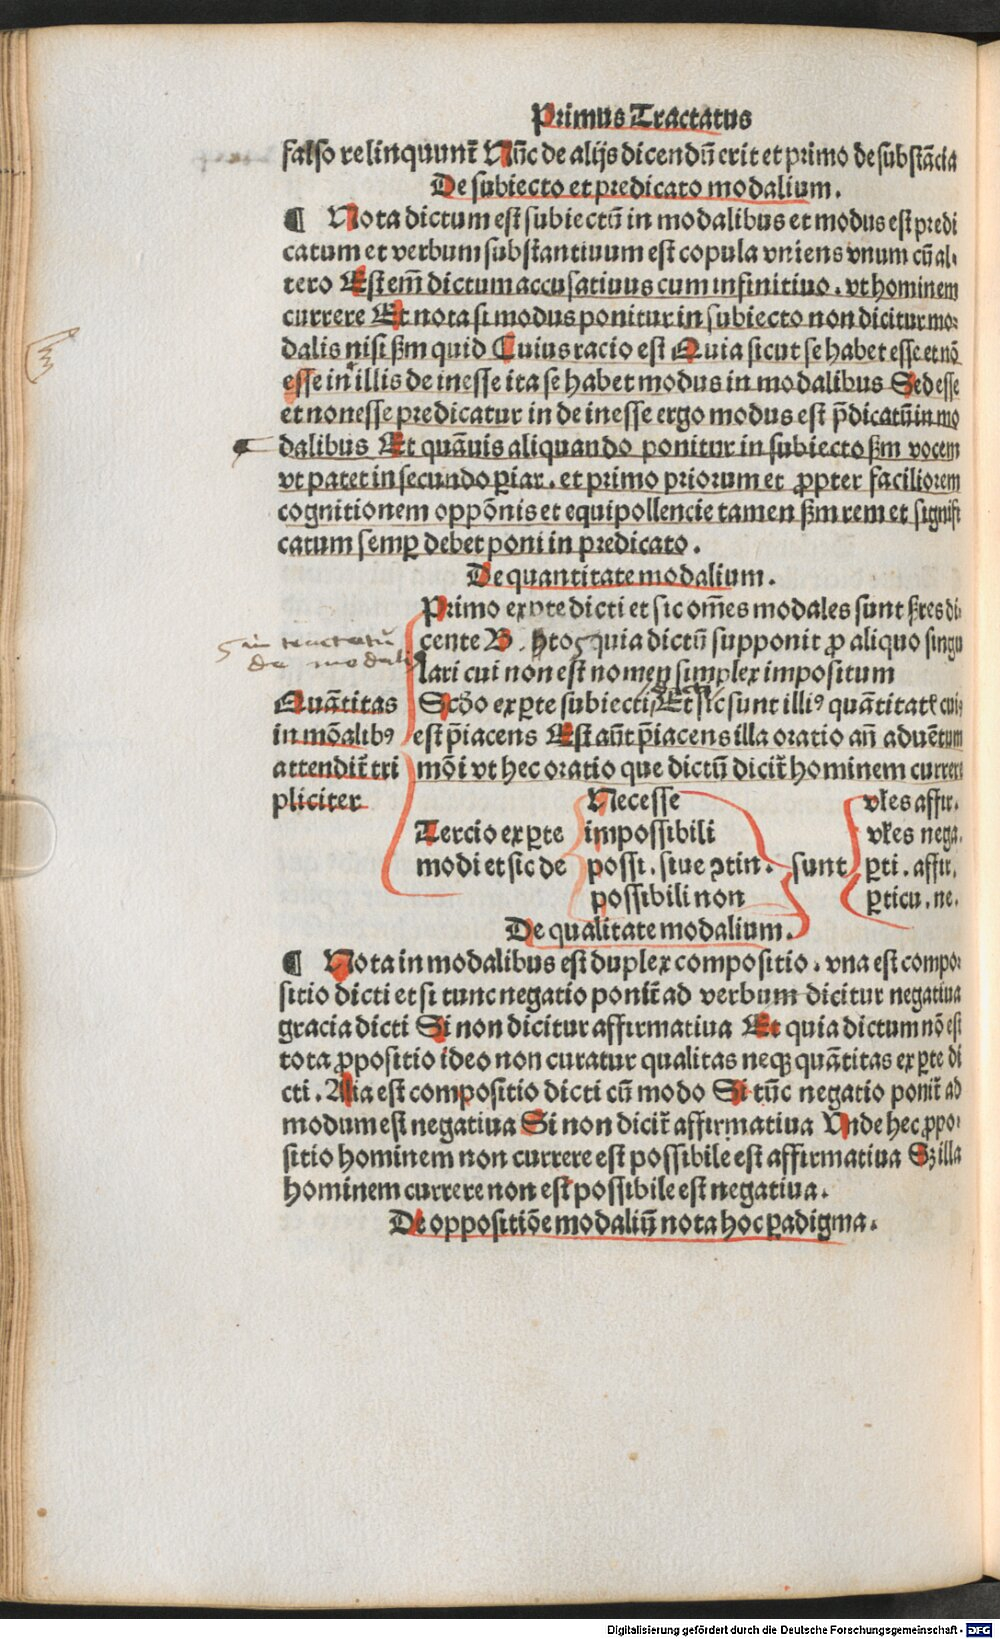 Primus Tractatus
falso relinquunt̄ Nūc de alijs dicendū erit et primo de substācia
De subiecto et predicato modalium.
¶ Nota dictum est subiectū in modalibus et modus est predi
catum et verbum substantiuum est copula vniens vnum cū al⸗
tero Est em̄ dictum accusatiuus cum infinitiuo. vt hominem
currere Et nota si modus ponitur in subiecto non dicitur mo⸗
dalis nisi ßm quid Cuius racio est Quia sicut se habet esse et nō
esse in illis de inesse ita se habet modus in modalibus Sed esse
et non esse predicatur in de inesse ergo modus est p̄dicatū in mo
dalibus Et quāuis aliquando ponitur in subiecto ßm vocem
vt patet in secundo ꝑiar. et primo priorum et ꝓpter faciliorem
cognitionem oppōnis et equipollencie tamen ßm rem et signifi
catum semꝑ debet poni in predicato.
De quantitate modalium.
Primo ex ꝑte dicti et sic om̄es modales sunt
cente B. quia dictū supponit ꝓ aliquo singu
lari cui non est nomen simplex impositum
Scd̄o ex ꝑte subiecti Et sic sunt illiꝰ quātitatꝭ cuiꝰ
est p̄iacens Est aūt p̄iacens illa oratio an̄ aduētum
mōi vt hec oratio que dictū dicit̄ hominem currere
in tractatu
de modali
Quātitas
in mōalibꝰ
attendit̄ tri
pliciter
Tercio ex ꝑte
modi et sic de
Necesse
impossibili
possi. siue ꝯtin.
possibili non
sunt
vl̄es affir.
vl̄es nega.
ꝑti. affir.
ꝑticu. ne.
De qualitate modalium.
¶ Nota in modalibus est duplex compositio. vna est compo⸗
sitio dicti et si tunc negatio ponit̄ ad verbum dicitur negatiua
gracia dicti Si non dicitur affirmatiua Et quia dictum nō est
tota ꝓpositio ideo non curatur qualitas neqꝫ quātitas ex ꝑte di
cti. Alia est compositio dicti cū modo Si tūc negatio ponit̄ ad
modum est negatiua Si non dicit̄ affirmatiua Vnde hec ꝓpo⸗
sitio hominem non currere est possibile est affirmatiua Sꝫ illa
hominem currere non est possibile est negatiua.
De oppositiōe modaliū nota hoc ꝑadigma.
Digitalisierung gefördert durch die Deutsche Forschungsgemeinschaft - DFG